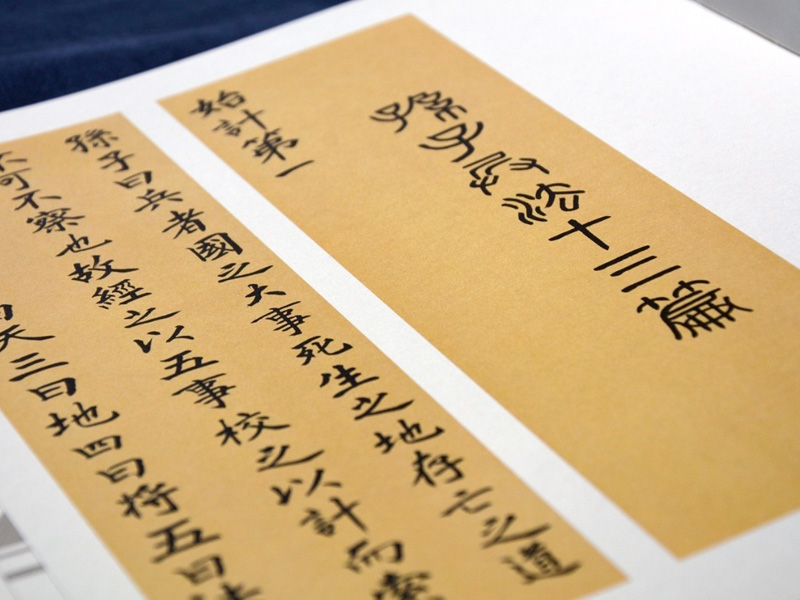 孫子兵法十三篇
始計第一
孫子曰兵者國之大事死生之地存亡之道
不可不察也故經之以五事校之以計而索
曰天三曰地四曰將五曰法